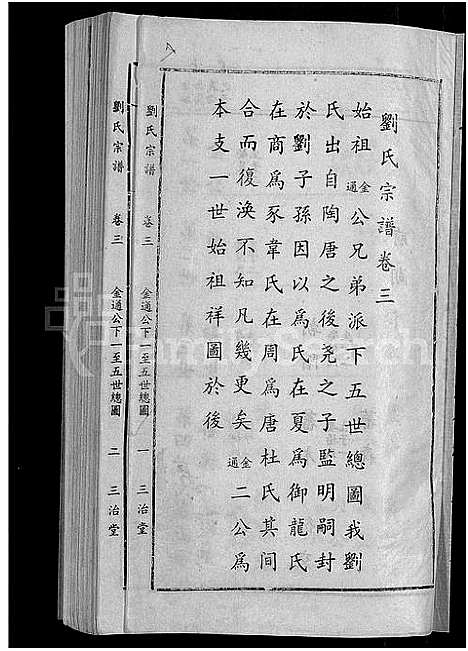 劉氏宗譜卷三
始祖金通公兄弟派下五世總圖我劉
氏出自陶唐之後尧之子監明嗣封
於劉子孫因以爲氏在夏爲御龍氏
在商爲豕韋氏在周爲唐杜氏其间
合而復渙不知凡幾更矣金通二公爲
本支一世始祖祥圖於後
劉氏宗譜 卷三 金通公下一至五世總圖 一 三治堂
劉氏宗譜 卷三 金通公下一至五世總圖 二 三治堂
FamilySearch